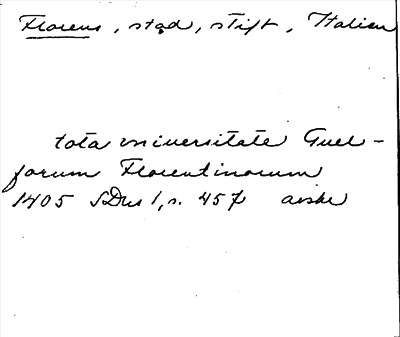 Florens, stad, stift, Italien
tota vniuersitate Guel-
forum Florentinorum
1405 SDns 1, s. 457 avskr